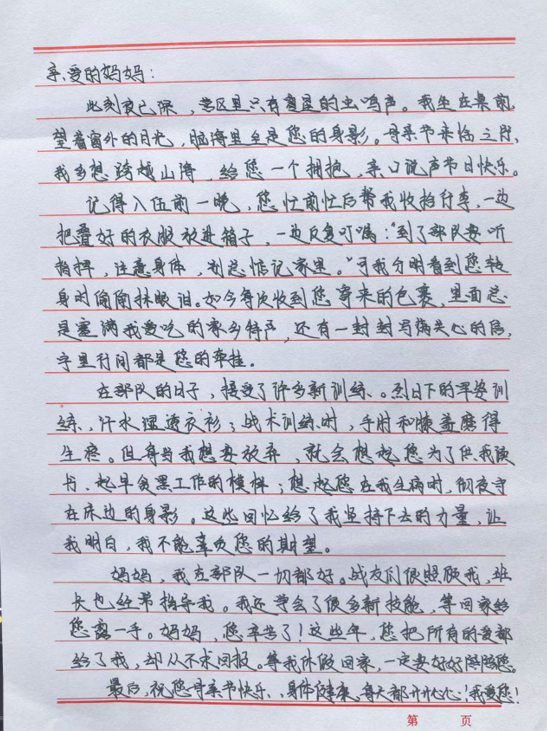 亲爱的妈妈：
此刻夜已深，营区里只有零星的虫鸣声。我坐在桌前，
望着窗外的月光，脑海里全是您的身影。母亲节来临之际，
我多想跨越山海，给您一个拥抱，亲口说声节日快乐。
记得入伍前一晚，您忙前忙后帮我收拾行李，一边
把叠好的衣服放进箱子，一边反复叮嘱："到了部队要听
指挥，注意身体，别总惦记家里。"可我分明看到您转
身时偷偷抹眼泪。如今每次收到您寄来的包裹，里面总
是塞满我爱吃的家乡特产，还有一封封写满关心的信，
字里行间都是您的牵挂。
在部队的日子，接受了许多新训练、。烈日下的军姿训
练，汗水湿透衣衫；战术训练时，手肘和膝盖磨得
生疼。但每当我想要放弃，就会想起您为了供我读
书、起早贪黑工作的模样；想起您在我生病时，彻夜守
在床边的身影。这些回忆给了我坚持下去的力量，让
我明白，我不能辜负您的期望。
妈妈，我在部队一切都好。战友们很照顾我，班
长也经常指导我。我还学会了很多新技能，等回家给
您露一手。妈妈，您辛苦了！这些年，您把所有的爱都
给了我，却从不求回报。等我休假回家，一定要好好陪陪您。
最后，祝您母亲节快乐、身体健康、每天都开开心心！我爱您！
第 页